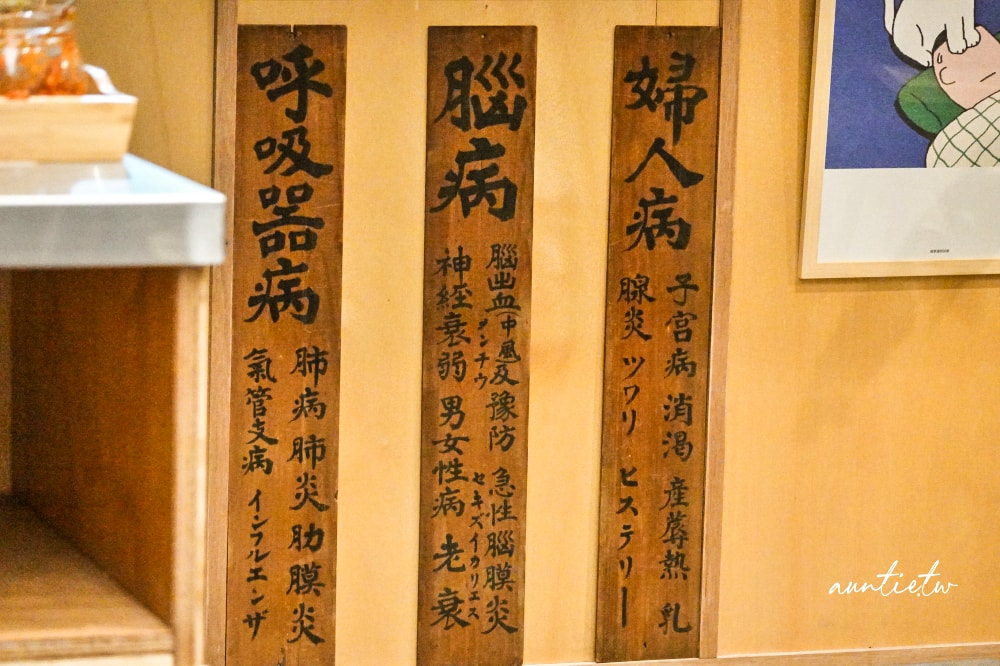 婦人病
子宮病 消渇 産蓐熱 乳
腺炎 ツワリ ヒステリー
腦病
腦出血(中風及豫防 急性腦膜炎
神経衰弱 男女性病 老衰
セキズイカリエス
呼吸器病
肺病 肺炎 肋膜炎
氣管支病 インフルエンザ
auntie.tw